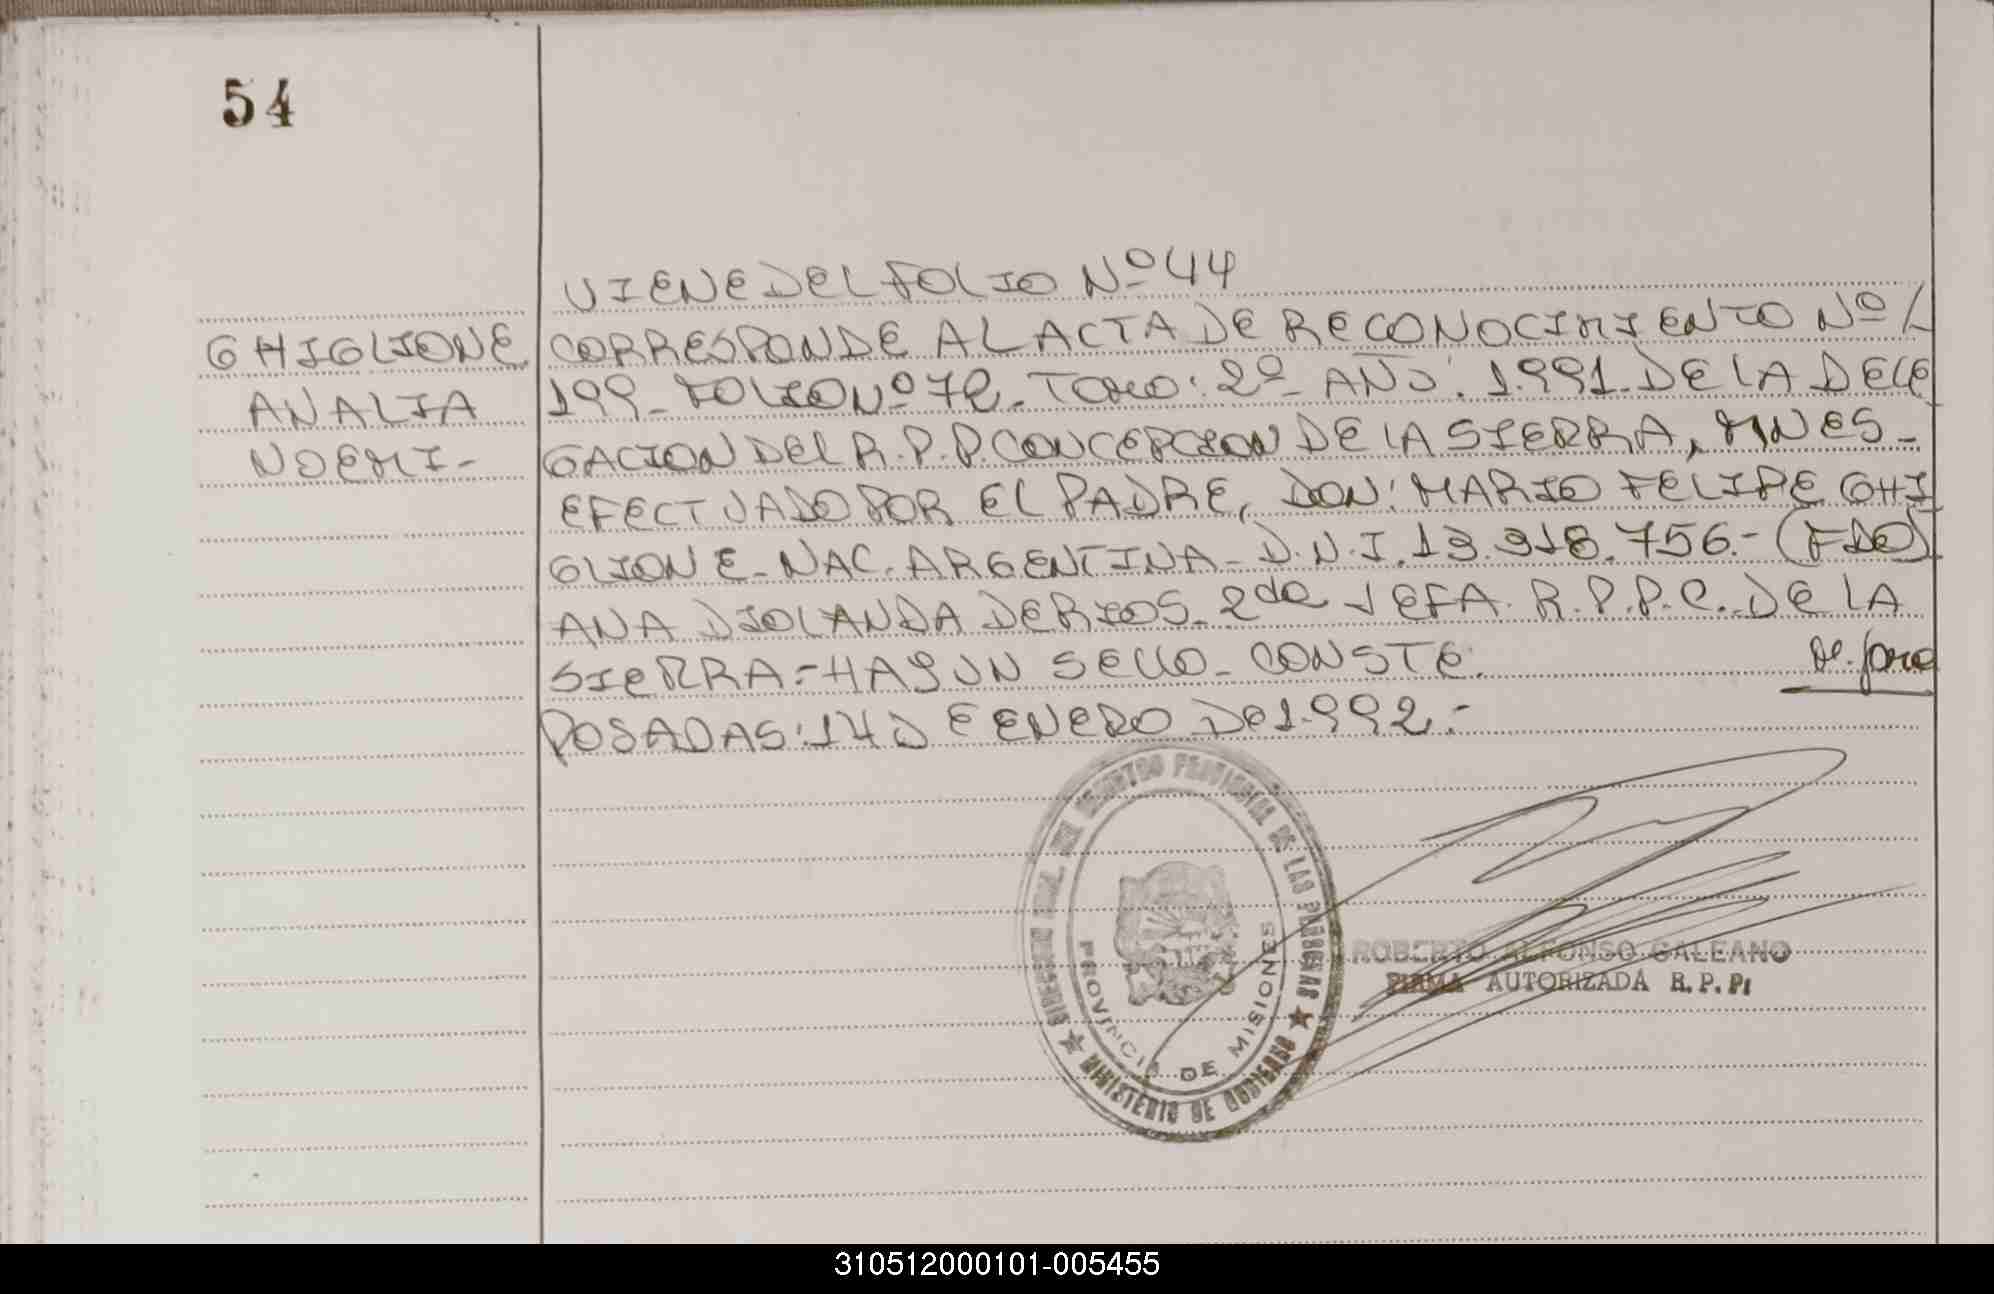 54
VIENE DEL FOLIO Nº 44
GHIGLIONE
ANALIA
NOEMI-
CORRESPONDE AL ACTA DE RECONOCIMIENTO Nº/
199_ FOLIO Nº 72_ TOMO: 2º_ AÑO: 1.991. DE LA DELE
GACION DEL R.P.P. CONCEPCION DE LA SIERRA, MNES_
EFECTUADO POR EL PADRE, DON: MARIO FELIPE GHI
GLIONE_ NAC. ARGENTINA_ D.N.I. 13.318.756.- (FDO)
ANA DIOLANDA DE RIOS_ 2da JEFA. R.P.P.C. DE LA
SIERRA=HAY UN SELLO_ CONSTE.
POSADAS: 14 DE ENERO DE 1.992.-
DIRECCION GRAL. DEL REGISTRO PROVINCIAL DE LAS PERSONAS
MINISTERIO DE GOBIERNO
PROVINCIA DE MISIONES
ROBERTO ALFONSO GALEANO
FIRMA AUTORIZADA R.P.P.
310512000101-005455